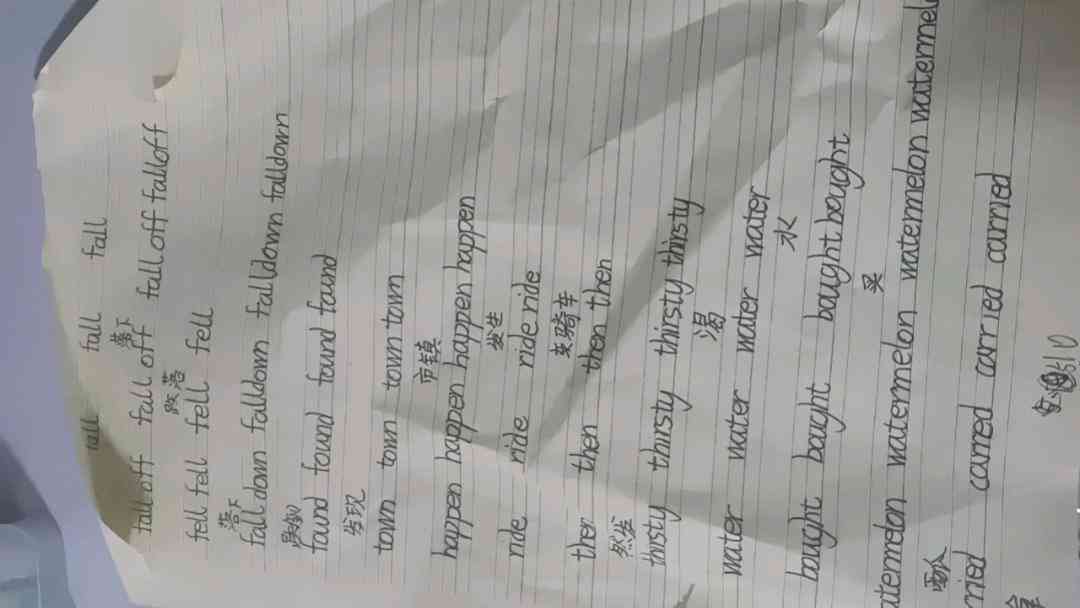 fall fall fall
落下
fall off fall off fall off falloff
跌落
fell fell fell fell
落下
fall down falldown falldown falldown
found found found found
发现
town town town town
市镇
happen happen happen happen
发生
ride ride ride ride
骑车
then then then then
然后
thirsty thirsty thirsty thirsty
渴
water water water water
水
bought bought bought bought
买
atermelon watermelon watermelon watermel
ried carried carried carried